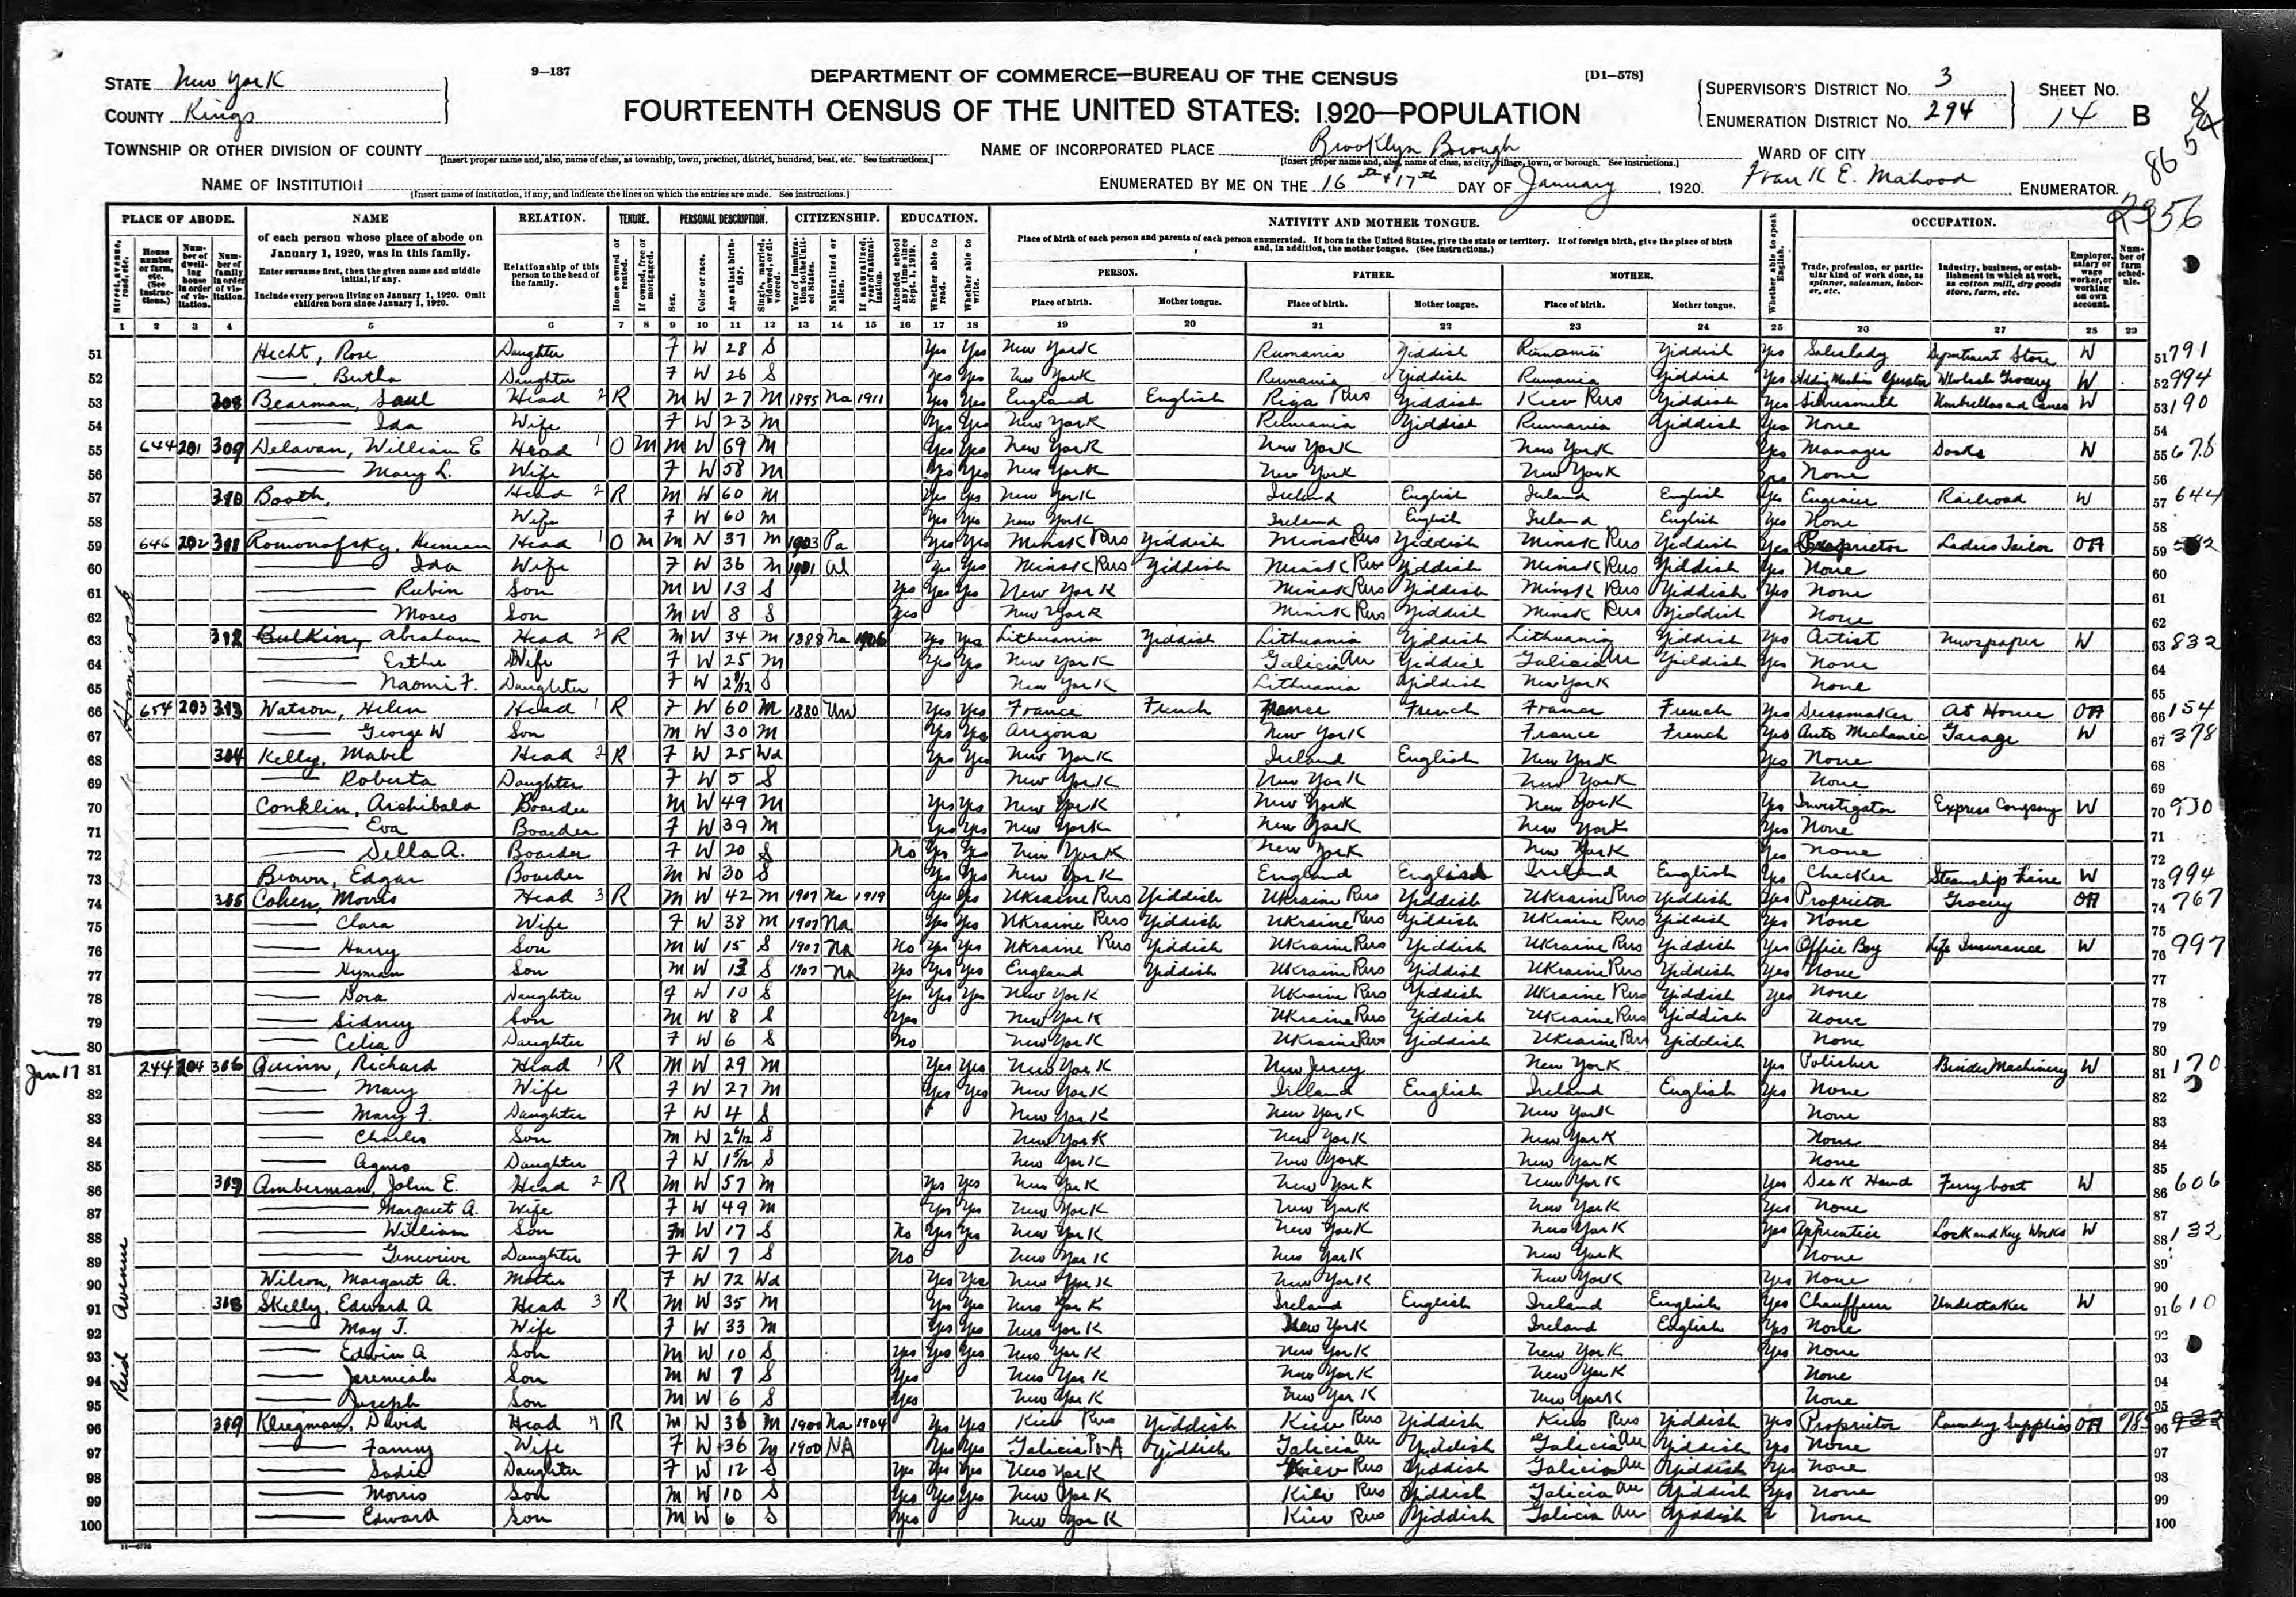 STATE New York
COUNTY Kings
9—137
DEPARTMENT OF COMMERCE—BUREAU OF THE CENSUS
[D1-578]
FOURTEENTH CENSUS OF THE UNITED STATES: 1920—POPULATION
SUPERVISOR'S DISTRICT No. 3
ENUMERATION DISTRICT No. 294
SHEET No. 14 B
TOWNSHIP OR OTHER DIVISION OF COUNTY
[Insert proper name and, also, name of class, as township, town, precinct, district, hundred, beat, etc. See instructions.]
NAME OF INCORPORATED PLACE Brooklyn Borough
[Insert proper name and, also, name of class, as city, village, town, or borough. See instructions.]
WARD OF CITY
86
NAME OF INSTITUTION
[Insert name of institution, if any, and indicate the lines on which the entries are made. See instructions.]
ENUMERATED BY ME ON THE 16th + 17th DAY OF January, 1920. Frank E. Mahood ENUMERATOR.
2356
PLACE OF ABODE. NAME RELATION. TENURE. PERSONAL DESCRIPTION. CITIZENSHIP. EDUCATION. NATIVITY AND MOTHER TONGUE. OCCUPATION.
of each person whose place of abode on January 1, 1920, was in this family.
Enter surname first, then the given name and middle initial, if any.
Include every person living on January 1, 1920. Omit children born since January 1, 1920.
Relationship of this person to the head of the family.
Place of birth of each person and parents of each person enumerated. If born in the United States, give the state or territory. If of foreign birth, give the place of birth and, in addition, the mother tongue. (See instructions.)
PERSON. FATHER. MOTHER.
Place of birth. Mother tongue. Place of birth. Mother tongue. Place of birth. Mother tongue.
Whether able to speak English.
Trade, profession, or particular kind of work done, as spinner, salesman, laborer, etc.
Industry, business, or establishment in which at work, as cotton mill, dry goods store, farm, etc.
Employer, salary or wage worker, or working on own account.
Number of farm schedule.
1 2 3 4 5 6 7 8 9 10 11 12 13 14 15 16 17 18 19 20 21 22 23 24 25 26 27 28 29
51 Hecht, Rose Daughter F W 28 S Yes Yes New York Rumania Yiddish Rumania Yiddish Yes Saleslady Department Store W 51 791
52 Daughter F W 26 S Yes Yes New York Rumania Yiddish Rumania Yiddish Yes Wholesale Grocery W 52 994
53 308 Bearman, Saul Head 2 R M W 27 M 1895 Na 1911 Yes Yes England English Riga Rus Yiddish Kiev Rus Yiddish Yes Silversmith Umbrellas and Canes W 53 190
54 Ida Wife F W 23 M Yes Yes New York Rumania Yiddish Rumania Yiddish Yes None 54
55 644 201 309 Delavan, William E Head 1 O M M W 69 M Yes Yes New York New York New York Yes Manager Docks W 55 678
56 Mary L. Wife F W 58 M Yes Yes New York New York New York Yes None 56
57 310 Booth, Head 2 R M W 60 M Yes Yes New York Ireland English Ireland English Yes Engineer Railroad W 57 644
58 Wife F W 60 M Yes Yes New York Ireland English Ireland English Yes None 58
59 646 202 311 Romonofsky, Heiman Head 1 O M M W 37 M 1903 Pa Yes Yes Minsk Rus Yiddish Minsk Rus Yiddish Minsk Rus Yiddish Yes Proprietor Ladies Tailor OA 59
60 Ida Wife F W 36 M 1901 Al Yes Yes Minsk Rus Yiddish Minsk Rus Yiddish Minsk Rus Yiddish Yes None 60
61 Rubin Son M W 13 S Yes Yes Yes New York Minsk Rus Yiddish Minsk Rus Yiddish Yes None 61
62 Moses Son M W 8 S Yes New York Minsk Rus Yiddish Minsk Rus Yiddish None 62
63 312 Abraham Head 2 R M W 34 M 1888 Na 1906 Yes Yes Lithuania Yiddish Lithuania Yiddish Lithuania Yiddish Yes Artist Newspaper W 63 832
64 Esther Wife F W 25 M Yes Yes New York Galicia Au Yiddish Galicia Au Yiddish Yes None 64
65 Naomi F. Daughter F W S New York Lithuania Yiddish New York None 65
66 654 203 313 Watson, Helen Head 1 R F W 60 M 1880 Un Yes Yes France French France French France French Yes Dressmaker At Home OA 66 154
67 George W Son M W 30 M Yes Yes Arizona New York France French Yes Auto Mechanic Garage W 67 378
68 314 Kelly, Mabel Head 2 R F W 25 Wd Yes Yes New York Ireland English New York Yes None 68
69 Roberta Daughter F W 5 S New York New York New York None 69
70 Conklin, Archibald Boarder M W 49 M Yes Yes New York New York New York Yes Investigator Express Company W 70 930
71 Eva Boarder F W 39 M Yes Yes New York New York New York Yes None 71
72 Della A. Boarder F W 20 S No Yes Yes New York New York New York Yes None 72
73 Brown, Edgar Boarder M W 30 S Yes Yes New York England English Ireland English Yes Checker Steamship Line W 73 994
74 315 Cohen, Morris Head 3 R M W 42 M 1907 Na 1919 Yes Yes Ukraine Rus Yiddish Ukraine Rus Yiddish Ukraine Rus Yiddish Yes Proprietor Grocery OA 74 767
75 Clara Wife F W 38 M 1907 Na Yes Yes Ukraine Rus Yiddish Ukraine Rus Yiddish Ukraine Rus Yiddish Yes None 75
76 Harry Son M W 15 S 1907 Na No Yes Yes Ukraine Rus Yiddish Ukraine Rus Yiddish Ukraine Rus Yiddish Yes Office Boy Life Insurance W 76 997
77 Hyman Son M W 13 S 1907 Na Yes Yes Yes England Yiddish Ukraine Rus Yiddish Ukraine Rus Yiddish Yes None 77
78 Dora Daughter F W 10 S Yes Yes Yes New York Ukraine Rus Yiddish Ukraine Rus Yiddish Yes None 78
79 Sidney Son M W 8 S Yes New York Ukraine Rus Yiddish Ukraine Rus Yiddish None 79
80 Celia Daughter F W 6 S No New York Ukraine Rus Yiddish Ukraine Rus Yiddish None 80
Jan 17 81 244 204 316 Quinn, Richard Head 1 R M W 29 M Yes Yes New York New Jersey New York Yes Polisher Binder Machinery W 81 170
82 Mary Wife F W 27 M Yes Yes New York Ireland English Ireland English Yes None 82
83 Mary F. Daughter F W 4 S New York New York New York None 83
84 Charles Son M W 2 6/12 S New York New York New York None 84
85 Agnes Daughter F W 1 5/12 S New York New York New York None 85
86 317 Amberman, John E. Head 2 R M W 57 M Yes Yes New York New York New York Yes Deck Hand Ferry boat W 86 606
87 Margaret A. Wife F W 49 M Yes Yes New York New York New York Yes None 87
88 William Son M W 17 S No Yes Yes New York New York New York Yes Apprentice Lock and Key Works W 88 132
89 Genevieve Daughter F W 7 S No New York New York New York None 89
90 Wilson, Margaret A. Mother F W 72 Wd Yes Yes New York New York New York Yes None 90
91 318 Skelly, Edward A Head 3 R M W 35 M Yes Yes New York Ireland English Ireland English Yes Chauffeur Undertaker W 91 610
92 May J. Wife F W 33 M Yes Yes New York New York Ireland English Yes None 92
93 Edwin A Son M W 10 S Yes Yes Yes New York New York New York Yes None 93
94 Jeremiah Son M W 7 S Yes New York New York New York None 94
95 Joseph Son M W 6 S Yes New York New York New York None 95
96 319 Kliegman, David Head 4 R M W M 1900 Na 1904 Yes Yes Kiev Rus Yiddish Kiev Rus Yiddish Kiev Rus Yiddish Yes Proprietor Laundry Supplies OA 96
97 Fanny Wife F W 36 M 1900 NA Yes Yes Galicia Po-A Yiddish Galicia Au Yiddish Galicia Au Yiddish Yes None 97
98 Sadie Daughter F W 12 S Yes Yes Yes New York Kiev Rus Yiddish Galicia Au Yiddish Yes None 98
99 Morris Son M W 10 S Yes Yes Yes New York Kiev Rus Yiddish Galicia Au Yiddish Yes None 99
100 Edward Son M W 6 S Yes New York Kiev Rus Yiddish Galicia Au Yiddish None 100
Reid Avenue